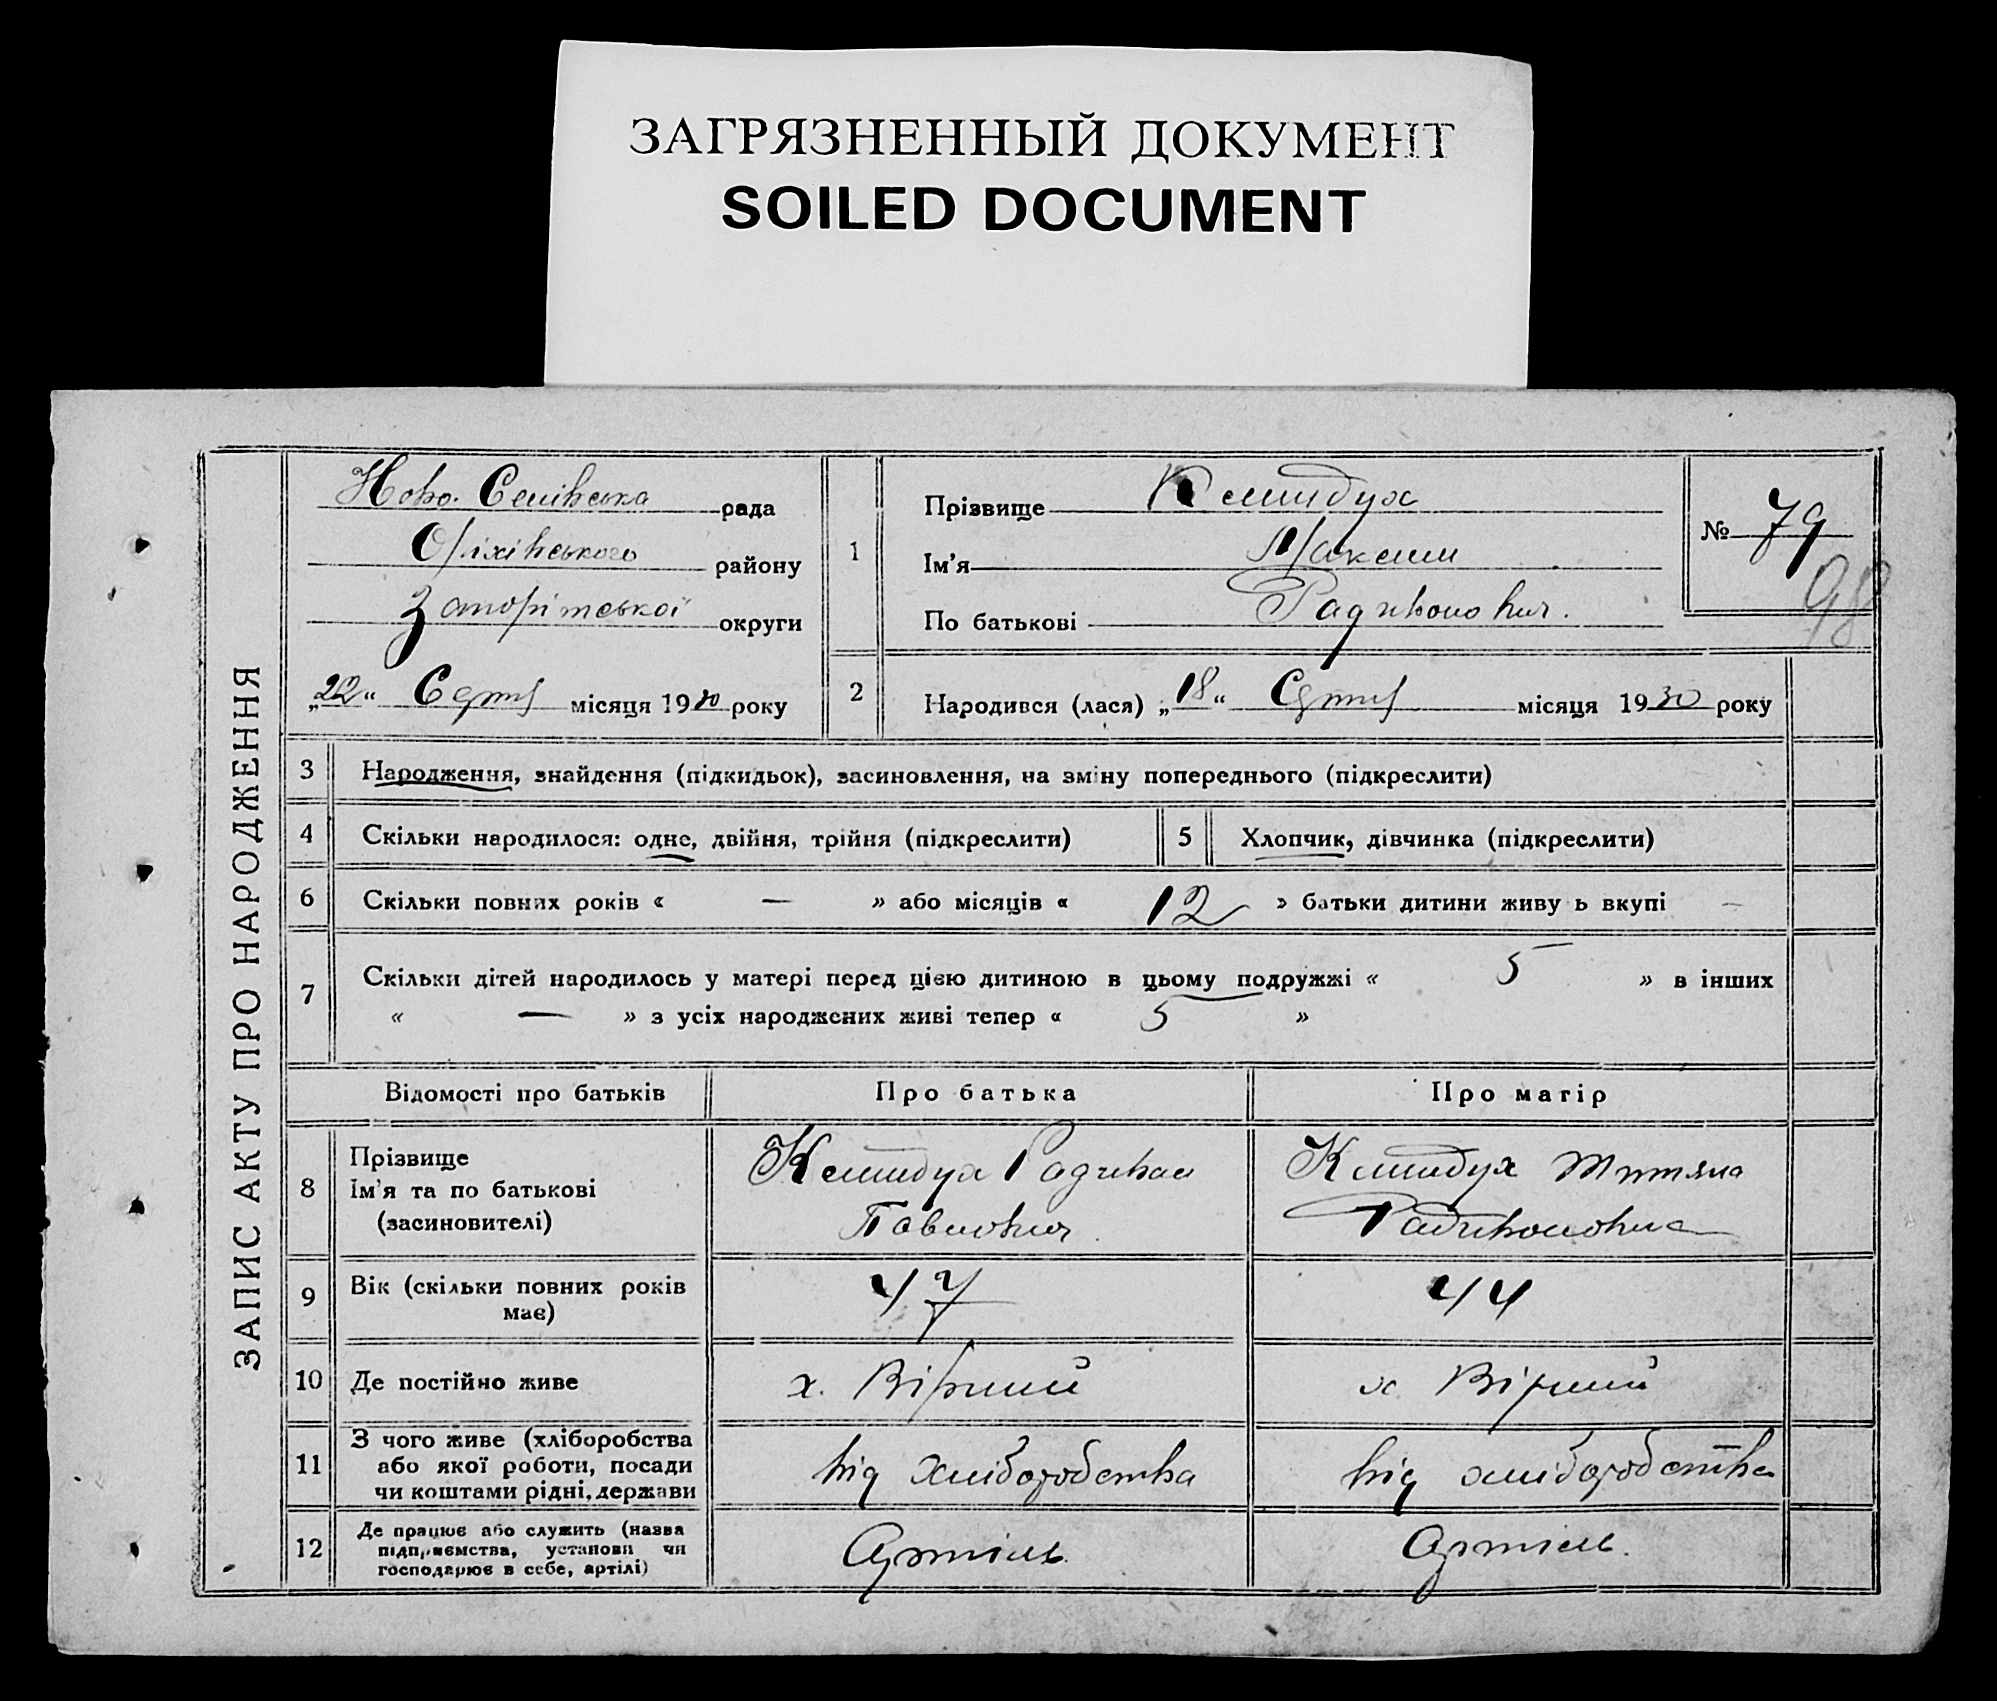 ЗАГРЯЗНЕННЫЙ ДОКУМЕНТ
SOILED DOCUMENT
ЗАПИС АКТУ ПРО НАРОДЖЕННЯ
рада
Оріхівського району
Запоріжської округи
„22“ місяця 1930 року
1
Прізвище
Ім'я Максим
По батькові
№ 79
98
2
Народився (лася) „18“ місяця 1930 року
3 Народження, знайдення (підкидьок), засиновлення, на зміну попереднього (підкреслити)
4 Скільки народилося: одне, двійня, трійня (підкреслити)
5 Хлопчик, дівчинка (підкреслити)
6 Скільки повних років « — » або місяців « 12 » батьки дитини живу ь вкупі
7 Скільки дітей народилось у матері перед цією дитиною в цьому подружжі « 5 » в інших
« — » з усіх народжених живі тепер « 5 »
Відомості про батьків
Про батька
Про матір
8 Прізвище
Ім'я та по батькові
(засиновителі)
Павлович
9 Вік (скільки повних років
має)
47
44
10 Де постійно живе
х. Вірний
х. Вірний
11 З чого живе (хліборобства
або якої роботи, посади
чи коштами рідні, держави
від хліборобства
від хліборобства
12 Де працює або служить (назва
підприємства, установи чи
господарює в себе, артілі)
Артіль
Артіль.